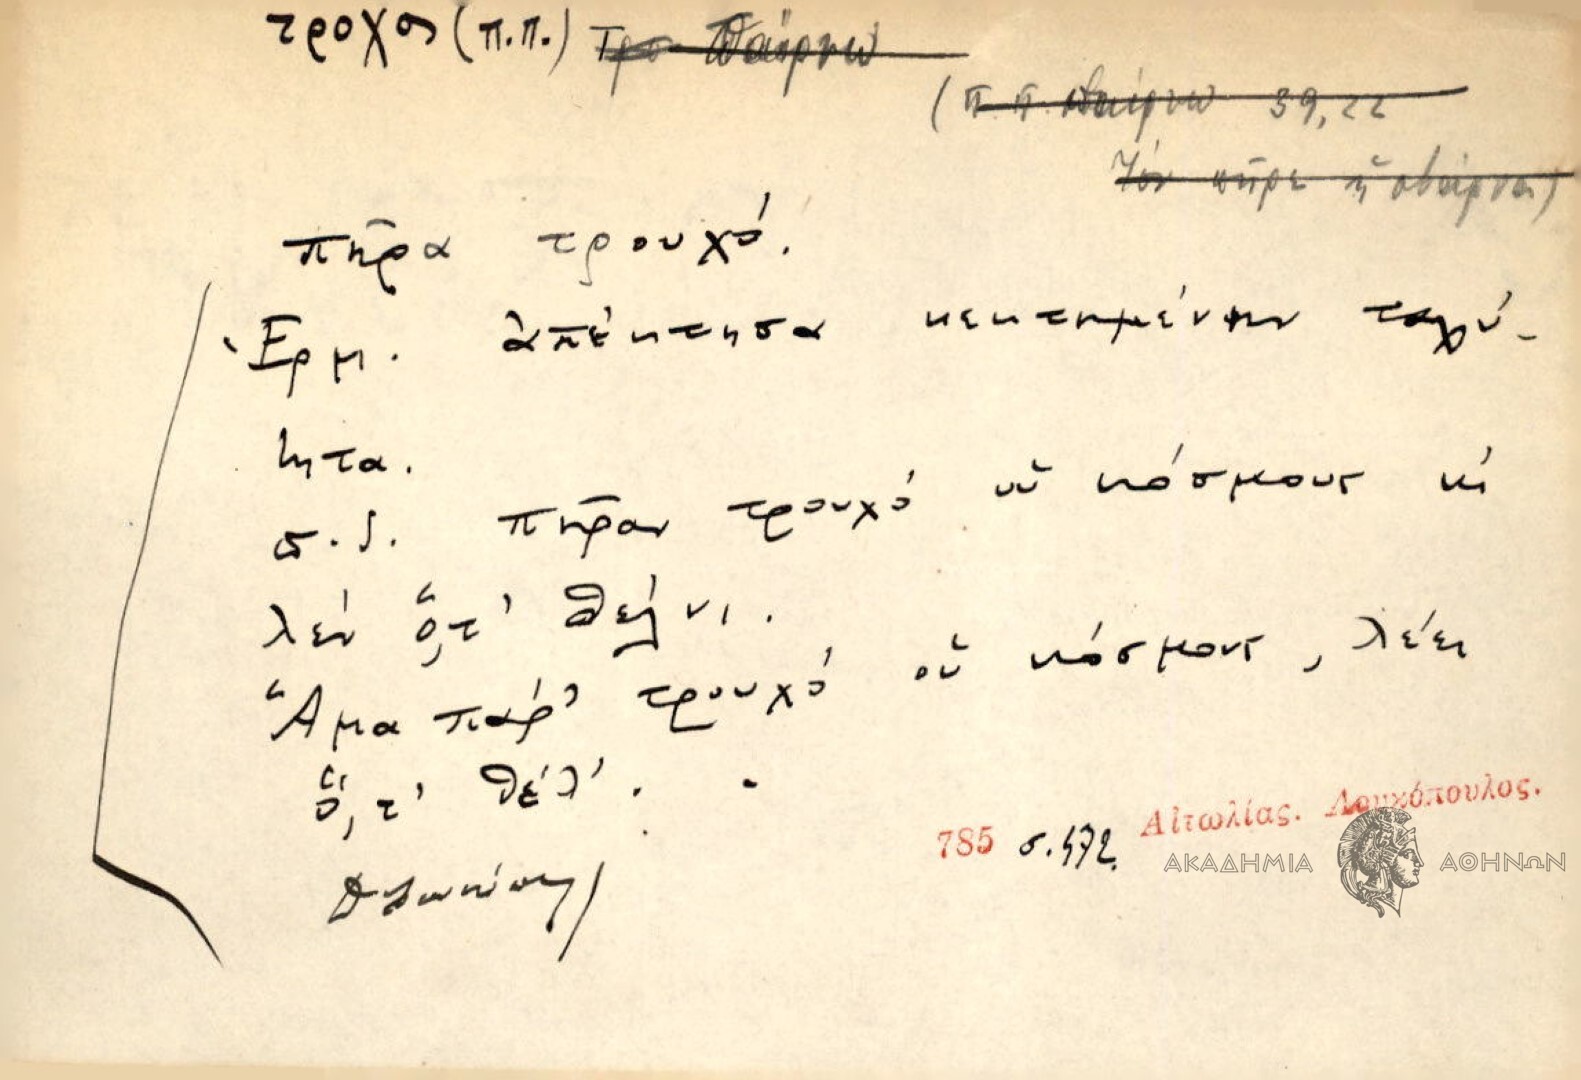 τροχος (π.π.) παίρνω
(π.π. παίρνω 39,22
Τὸν πῆρε ἡ
πῆρα τρουχό.
Ἑρμ. ἀπέκτησα κεκτημένην ταχύ-
τητα.
σ.δ. πῆραν τρουχό οὑ κόσμους κὶ
λὲν ὅ,τ' θέλνι.
Ἅμα πάρ' τρουχό οὑ κόσμους, λέει
ὅ,τ' θέλ'.
785 σ. 472. Αἰτωλίας. Λουκόπουλος.
ΑΚΑΔΗΜΙΑ ΑΘΗΝΩΝ